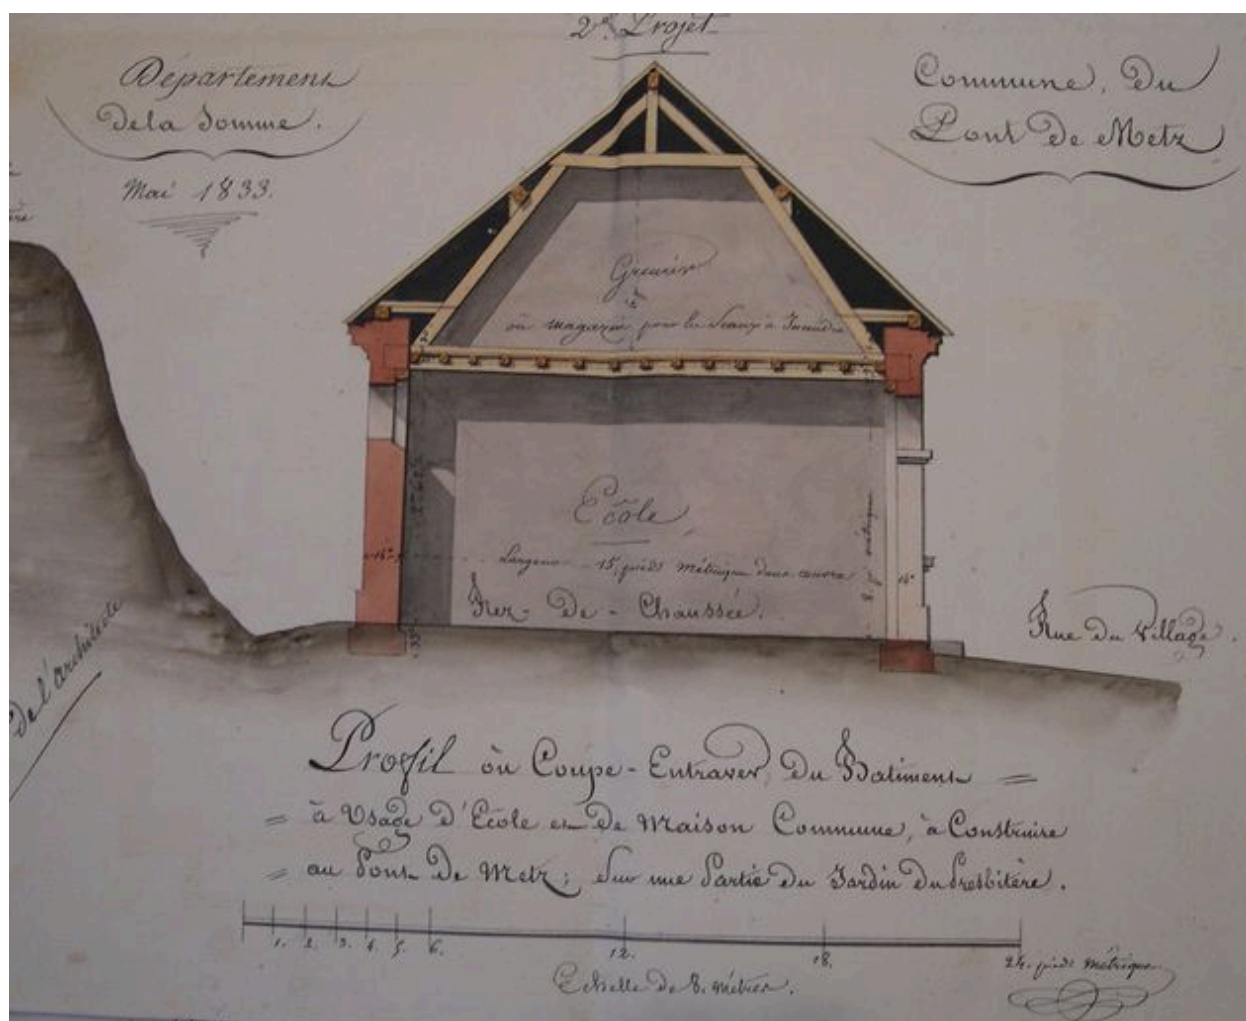 2e Projet
Département
De la Somme.
Mai 1833.
Commune, Du
Pont De Metz
Grenier
où magazin pour les Seaux à Incendie
Ecôle
Largeur 15, pieds métrique dans oeuvre
Rez - De - Chaussée.
8. p. métrique
Rue du Village.
De l'architecte
Profil où Coupe - Entraver, Du Batiment =
= à Usage D'Ecôle et De Maison Commune, à Construire
= au Pont De Metz; Sur une Partie Du Jardin Du Presbitère.
1. 2. 3. 4. 5. 6. 12. 18. 24. pieds métrique
Echelle de 8. mètres.